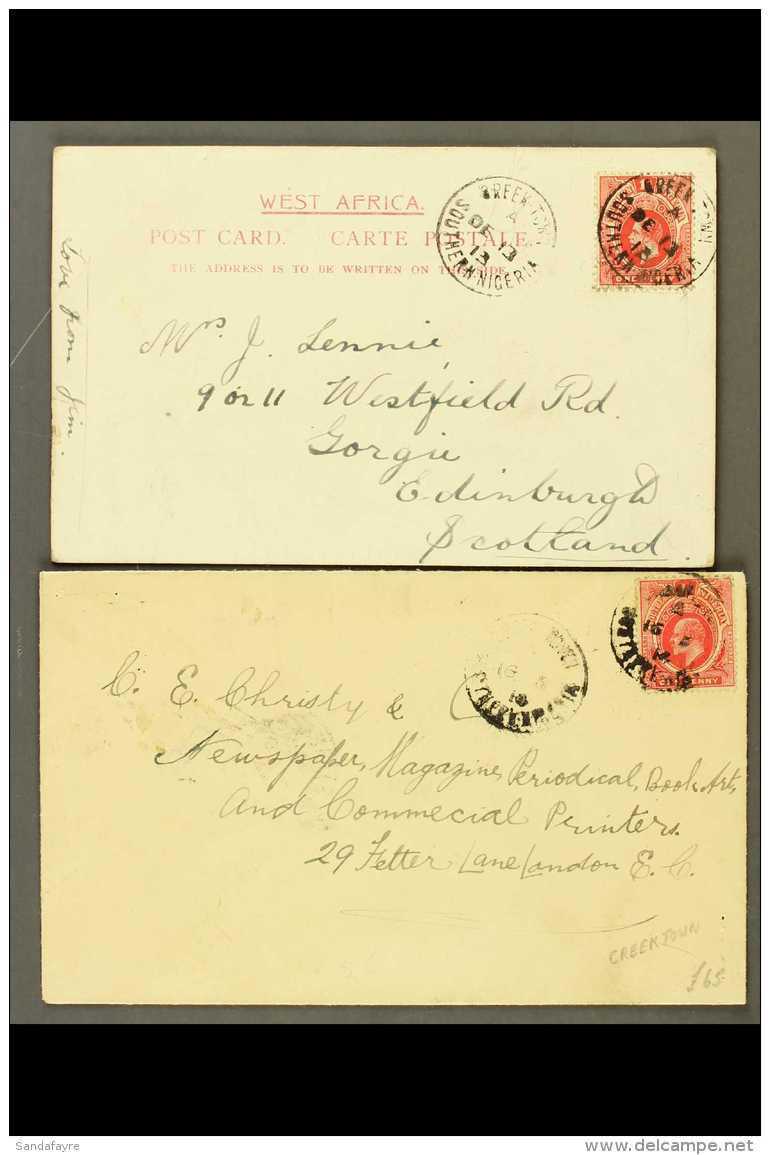 WEST AFRICA.
POST CARD. CARTE POSTALE.
THE ADDRESS IS TO BE WRITTEN ON THIS SIDE.
CREEK TOWN
A
DE 13
13
SOUTHERN NIGERIA
CREEK TOWN
A
DE 13
13
SOUTHERN NIGERIA
Love from Jim.
Mrs J. Lennie,
9 or 11 Westfield Rd.
Gorgie
Edinburgh
Scotland.
C. E. Christy &
Newspaper, Magazine, Periodical, Book, Art,
And Commecial Printers.
29 Fetter Lane London E. C.
CREEK TOWN
£65
Sandafayre
delcampe.net